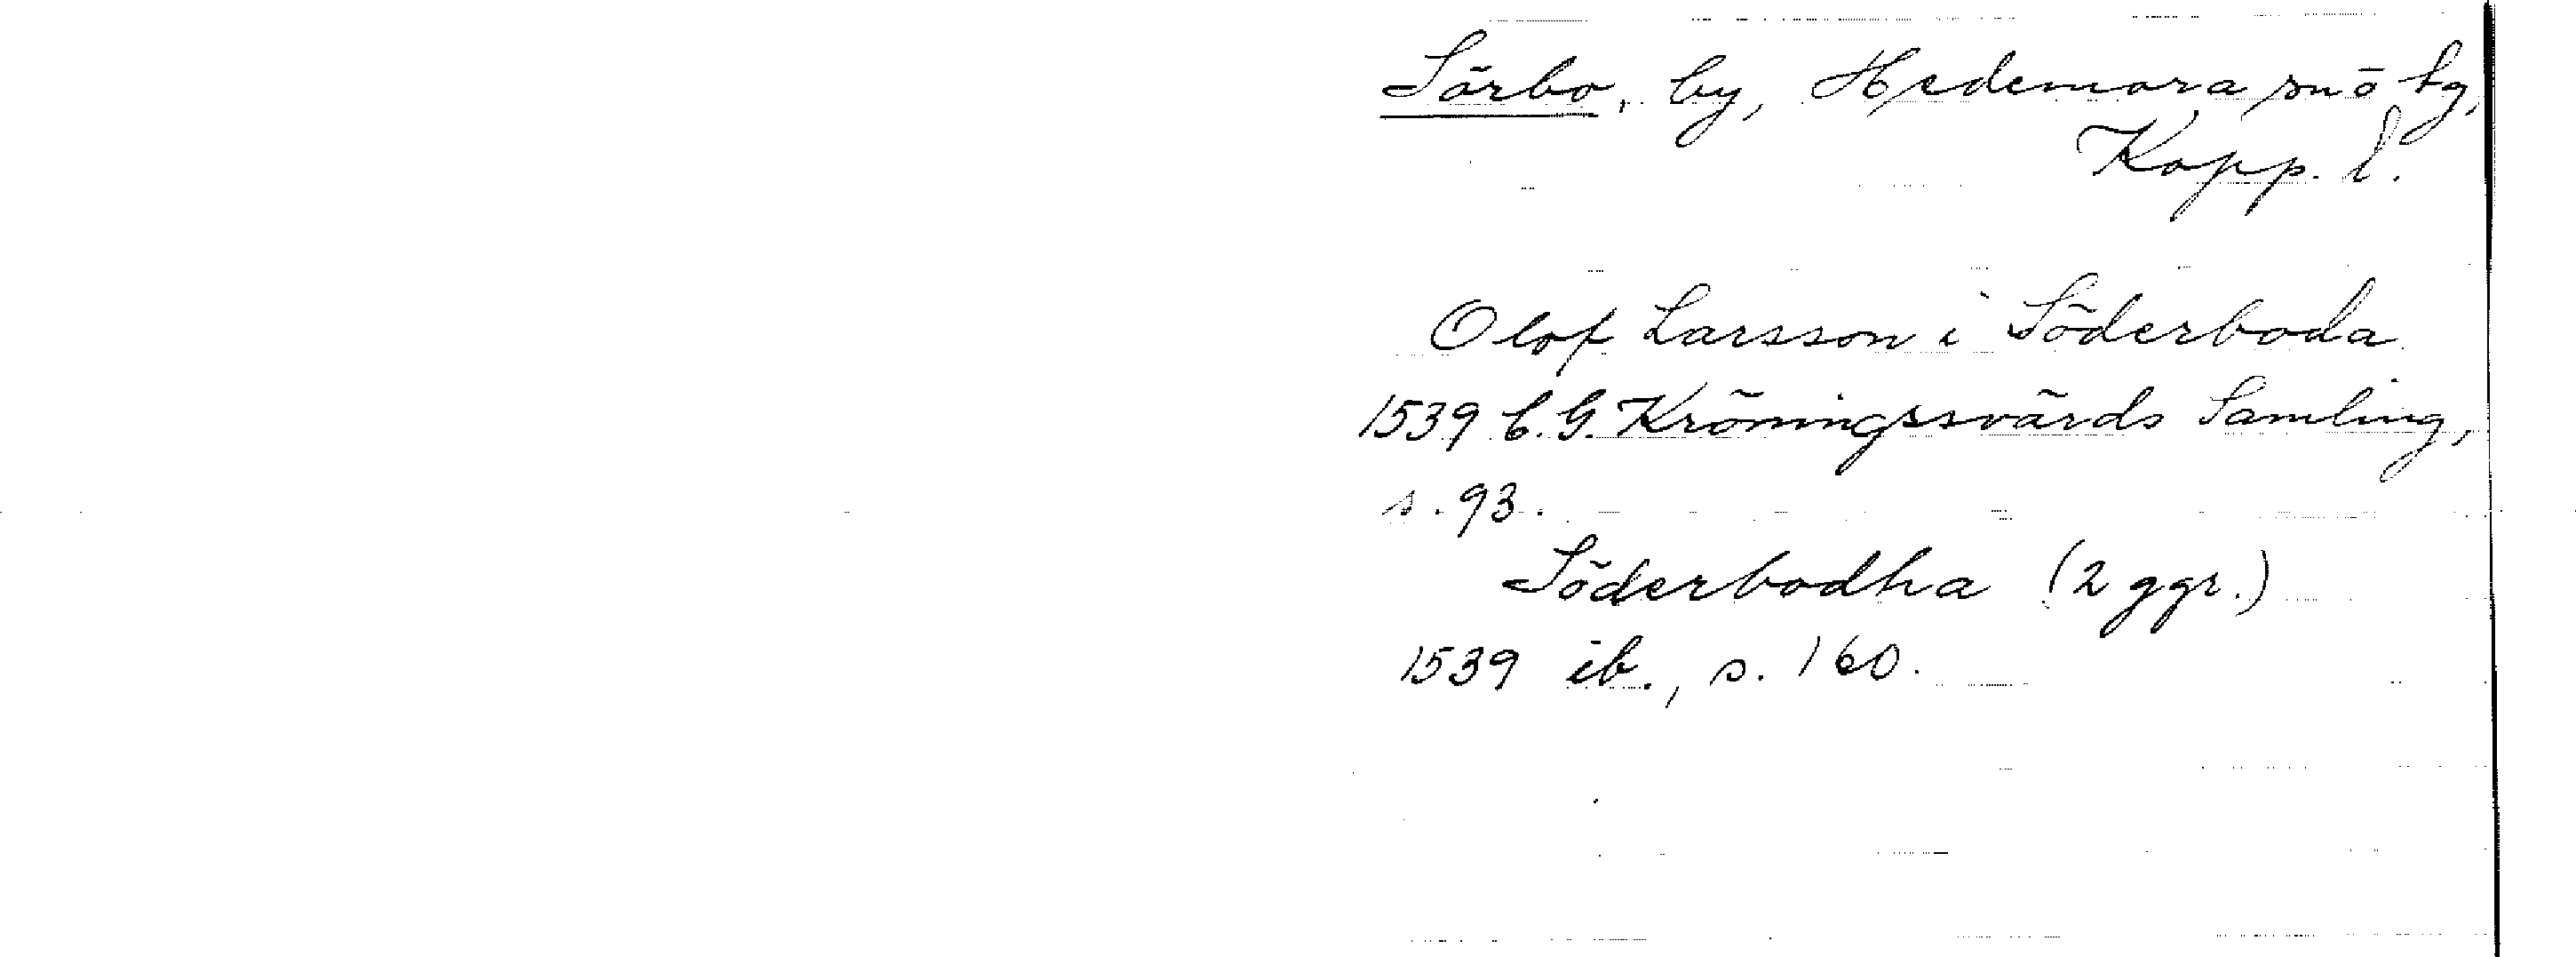 Sörbo, by, Hedemora sn o tg,
Kopp. l.
Olof Larsson i Söderboda
1539 C. G. Kröningssvärds Samling,
s. 93.
Söderbodha (2 ggr.)
1539 ib., s. 160.